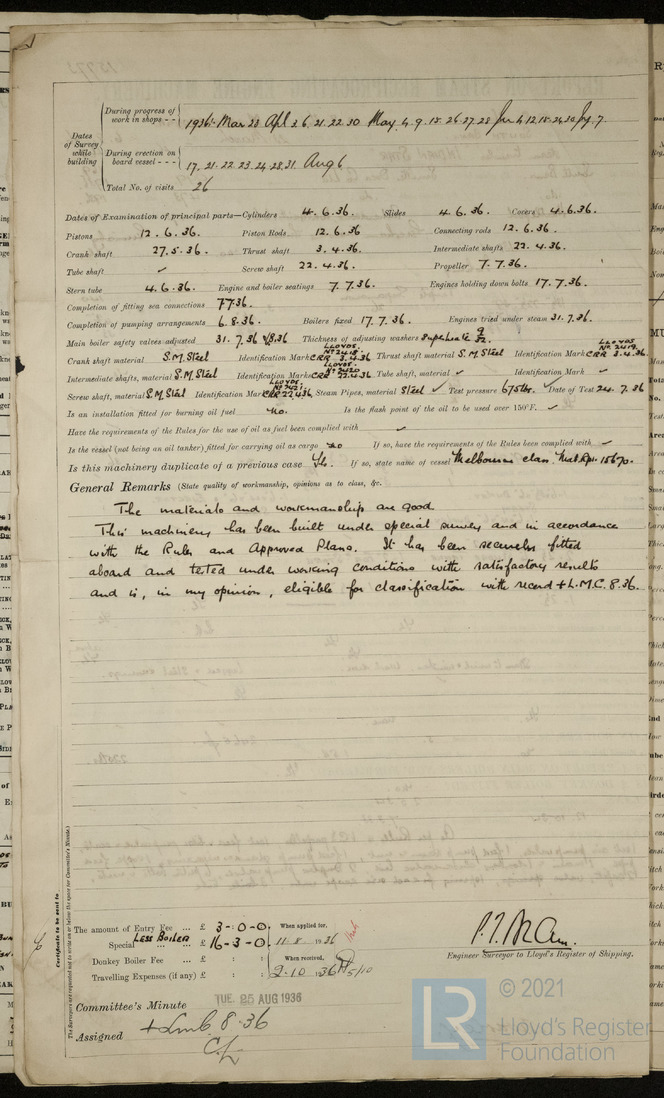 During progress of work in shops - - 1936:- Mar 23 Apl 3.6.21.22.30 May 4.9.18.26.27.28 Jun 4.12.18.24.30 Jy. 7.
Dates of Survey while building
During erection on board vessel - - - 17. 21. 22. 23. 24. 28. 31. Aug 6
Total No. of visits 26
Dates of Examination of principal parts—Cylinders 4.6.36. Slides 4.6.36. Covers 4.6.36.
Pistons 12.6.36. Piston Rods 12.6.36 Connecting rods 12.6.36.
Crank shaft 27.5.36. Thrust shaft 3.4.36. Intermediate shafts 22.4.36.
Tube shaft ✓ Screw shaft 22.4.36. Propeller 7.7.36.
Stern tube 4.6.36. Engine and boiler seatings 7.7.36. Engines holding down bolts 17.7.36.
Completion of fitting sea connections 7.7.36.
Completion of pumping arrangements 6.8.36. Boilers fixed 17.7.36. Engines tried under steam 31.7.36.
Main boiler safety valves adjusted 31.7.36 Thickness of adjusting washers
Crank shaft material S.M. Steel Identification Mark LLOYDS Nº 2418 CRR 3.4.36 Thrust shaft material S.M. Steel Identification Mark LLOYDS Nº 2419 CRR 3.4.36
Intermediate shafts, material S.M. Steel Identification Marks LLOYDS Nº 2420 CRR 22.4.36 Tube shaft, material ✓ Identification Mark ✓
Screw shaft, material S.M. Steel Identification Mark LLOYDS Nº 2421 CRR 22.4.36 Steam Pipes, material Steel ✓ Test pressure 675 lbs. ✓ Date of Test 24.7.36
Is an installation fitted for burning oil fuel no. Is the flash point of the oil to be used over 150°F. ✓
Have the requirements of the Rules for the use of oil as fuel been complied with ✓
Is the vessel (not being an oil tanker) fitted for carrying oil as cargo no If so, have the requirements of the Rules been complied with ✓
Is this machinery duplicate of a previous case Yes. If so, state name of vessel Melbourne class. Mat. Rpt. 15670.
General Remarks (State quality of workmanship, opinions as to class, &c.
The materials and workmanship are good.
This machinery has been built under special survey and in accordance
with the Rules and Approved Plans. It has been securely fitted
aboard and tested under working conditions with satisfactory results
and is, in my opinion, eligible for classification with record + L.M.C. 8.36.
Certificates to be sent to
The Surveyors are requested not to write on or below the space for Committee's Minute.
The amount of Entry Fee ... £ 3 - 0 - 0 When applied for,
Special LESS BOILER ... £ 16 - 3 - 0 11.8 1936
Donkey Boiler Fee ... £ : : When received,
Travelling Expenses (if any) £ : : 2.10.1936
Engineer Surveyor to Lloyd's Register of Shipping.
Committee's Minute TUE. 25 AUG 1936
Assigned + Lmc 8.36
© 2021
LR Lloyd's Register
Foundation